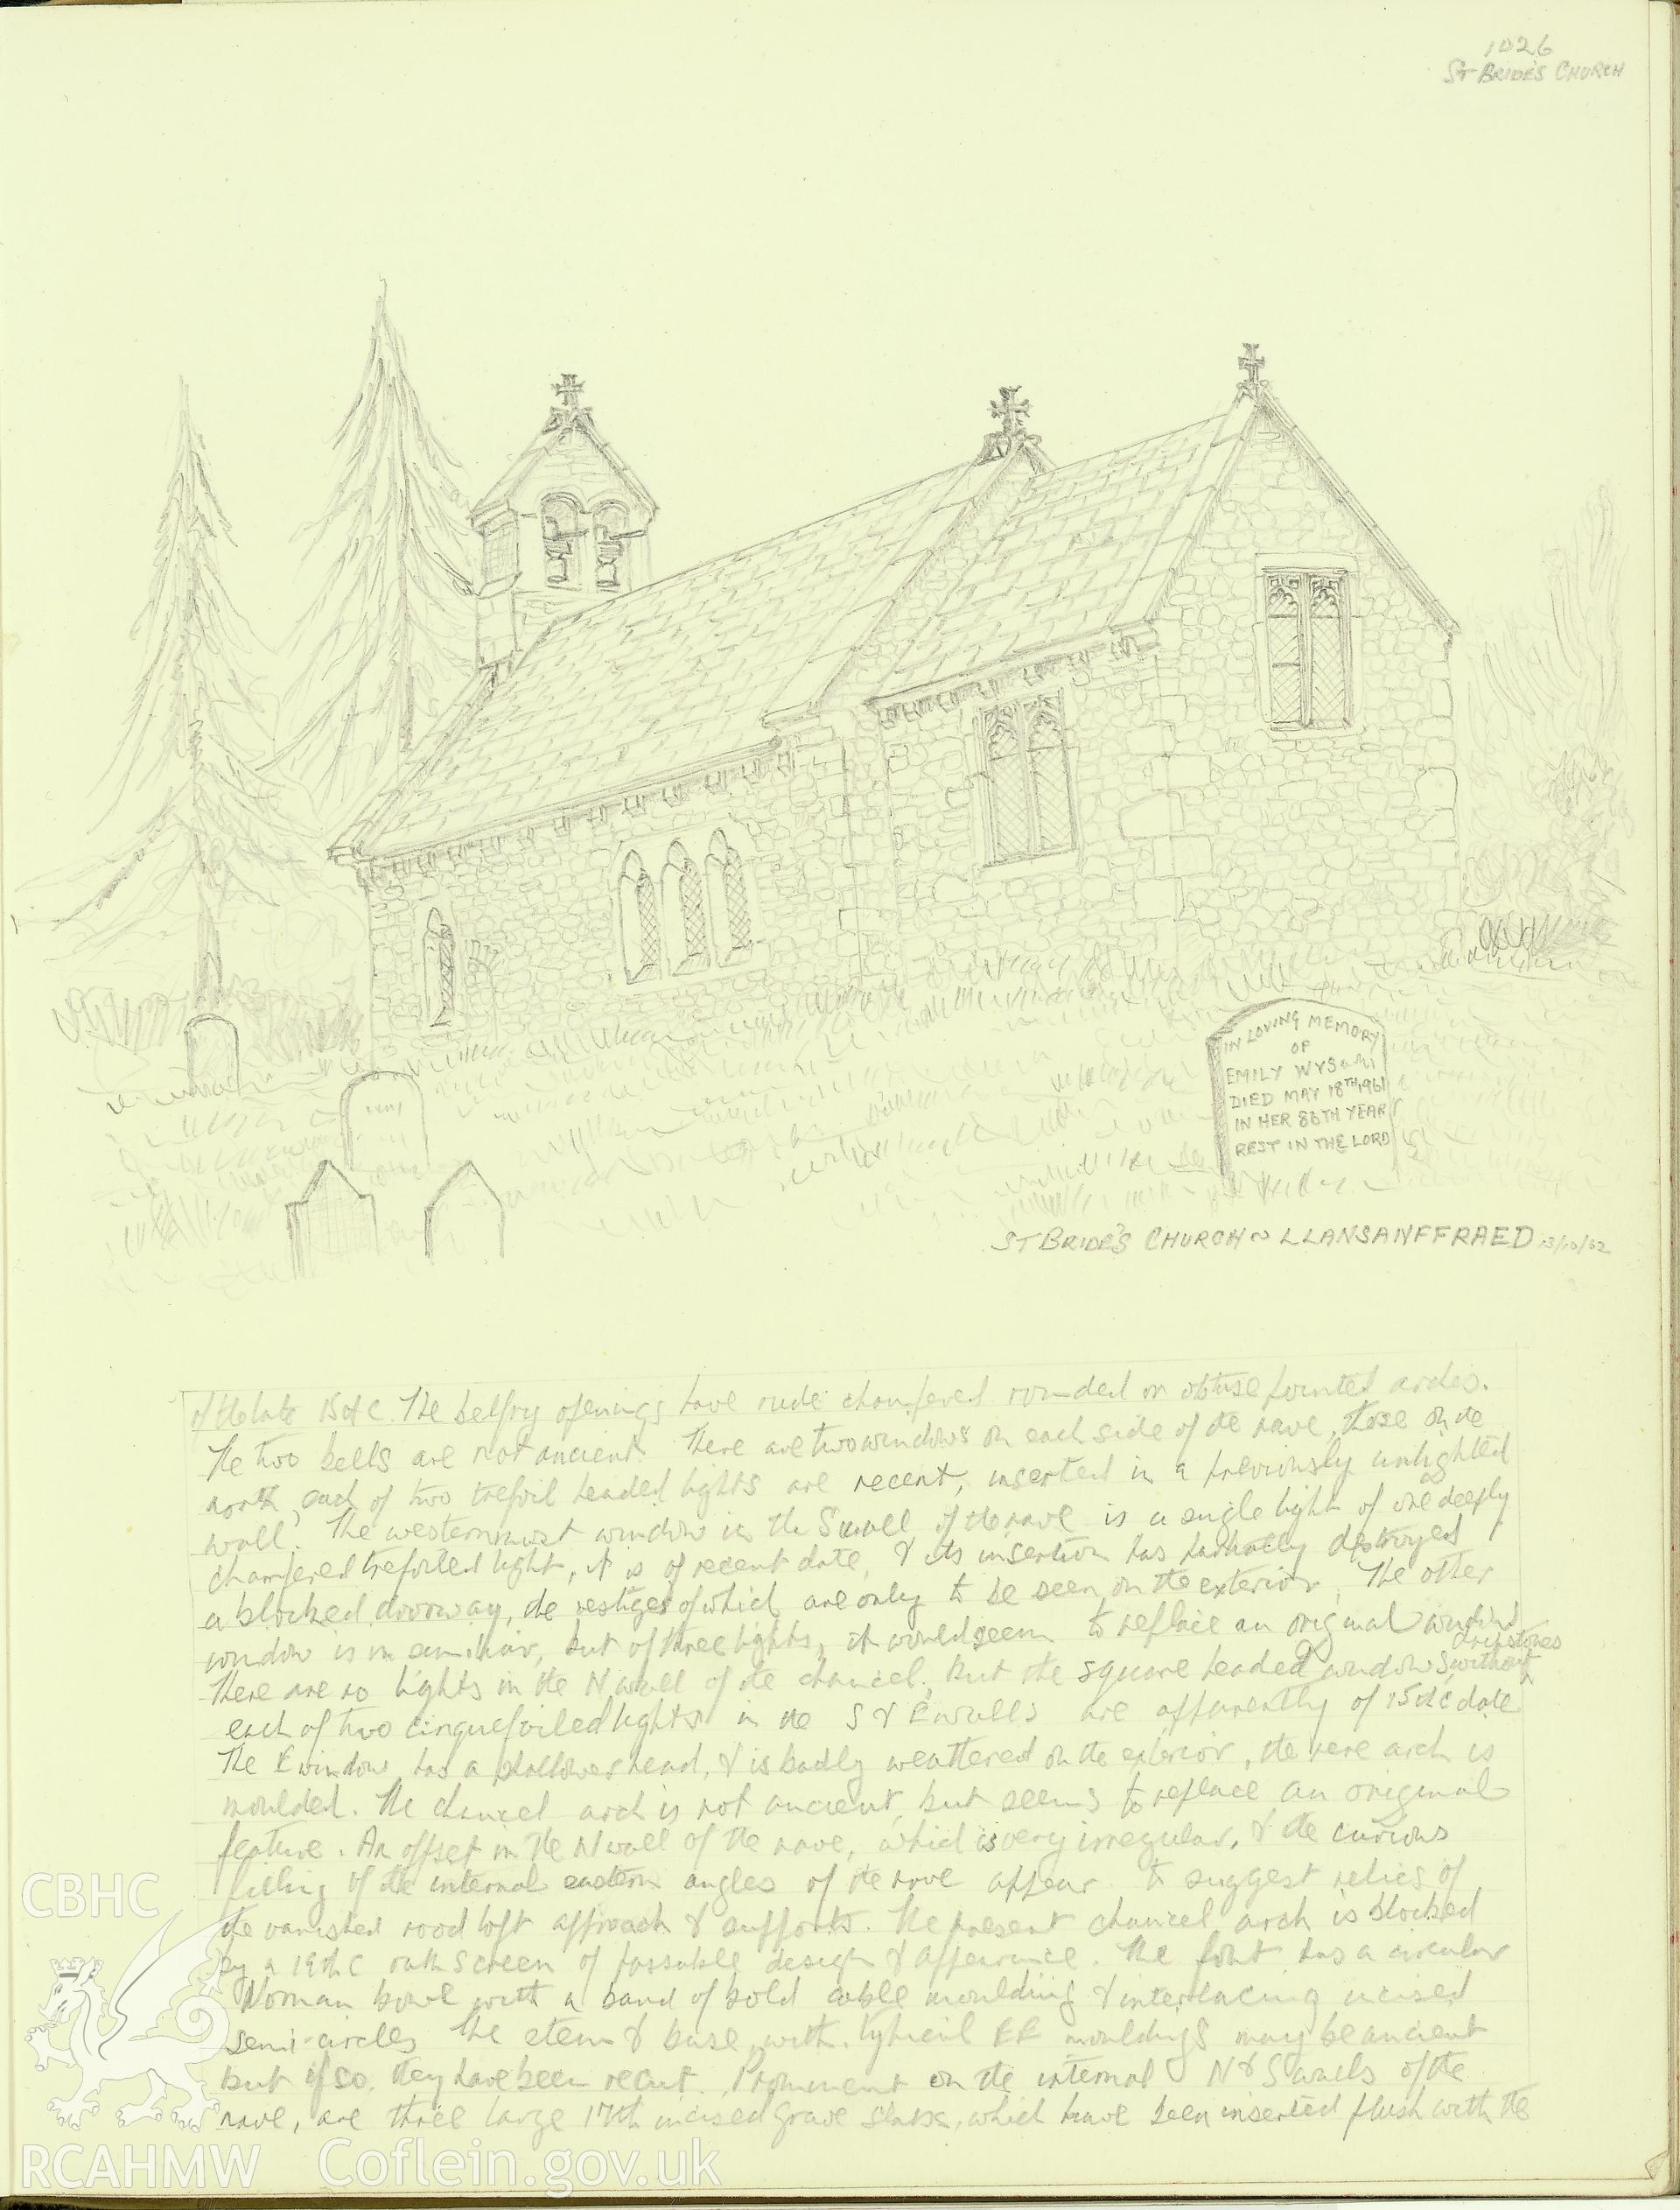 1026
ST BRIDE'S CHURCH
IN LOVING MEMORY
OF
EMILY
DIED MAY 18TH 1961
IN HER 86TH YEAR
REST IN THE LORD
ST BRIDE'S CHURCH ~ LLANSANFFRAED 13/10/62
of the late 15th C. The belfry openings have rude chamfered rounded or obtuse pointed arches.
The two bells are not ancient. There are two windows on each side of the nave, those on the
north, each of two trefoil headed lights are recent, inserted in a previously unlighted
wall. The westernmost window in the S wall of the nave is a single light of one deeply
chamfered trefoiled light, it is of recent date, & its insertion has partially destroyed
a blocked doorway, the vestiges of which are only to be seen on the exterior. The other
window is similar, but of three lights, it would seem to replace an original window
There are no lights in the N wall of the chancel, but the square headed windows, without dripstones
each of two cinquefoiled lights in the S & E walls are apparently of 15th C date
The E window has a shallower head, & is badly weathered on the exterior, the rere arch is
moulded. The chancel arch is not ancient, but seems to replace an original
feature. An offset in the N wall of the nave, which is very irregular, & the curious
filling of the internal eastern angles of the nave appear to suggest relics of
the vanished rood loft approach & supports. The present chancel arch is blocked
by a 19th C oak screen of passable design & appearance. The font has a circular
Norman bowl with a band of bold cable moulding & interlacing incised
semi-circles. The stem & base with typical EE mouldings may be ancient
but if so, they have been recut. Prominent on the internal N & S walls of the
nave, are three large 17th incised grave slabs, which have been inserted flush with the
CBHC
RCAHMW Coflein.gov.uk